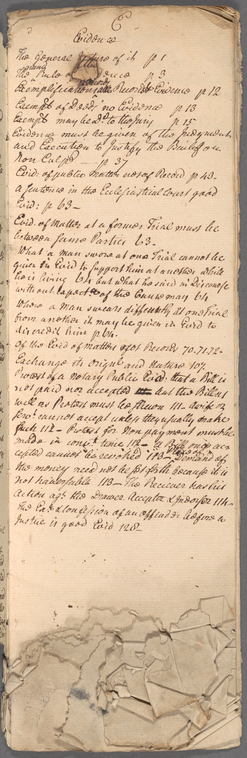 E
Evidence
The General Nature of it p 1
The Rule of Evidence p 3
Exemplifications Records Evidence p 12
Exempt of Deed, no Evidence p 13
Exempt may be to the Jury p 15
Evidence must be given of the Judgment
and Execution to Justify the Bailiff on
Non Culp p 37
Evid: of public matter not of Record p 43.
a Sentence in the Ecclesiastical Court good
Evid: p 63
Evid. of Matter at a former Trial must be
between same Parties 63.
What a man swore at one Trial cannot be
given in Evid to support him at another while
he is living 64 but what he said in Discourse
without of the Cause may 64
Where a man swears differently at one Trial
from another it may be given in Evid to
discredit him p 64.
Of the Evid of Matter not of Record 70.71.72
Exchange its Origin and Nature 107.
Protest of a Notary Public Evid. that a Bill is
not paid nor accepted but the Bill as
well as Protest must be shown 111.
cannot accept unless they usually make
such 112 Protest for Non payment must be
made in conv.t time 112 a Bill once ac-
cepted cannot be revoked 113 Demand of
the money need not be set forth because it is
not traversable 113 The Reciever has his
Action ag.t the Drawer Acceptor & Indorser 114
The Ex.n & Confession of an offender before a
Justice is good Evid 128